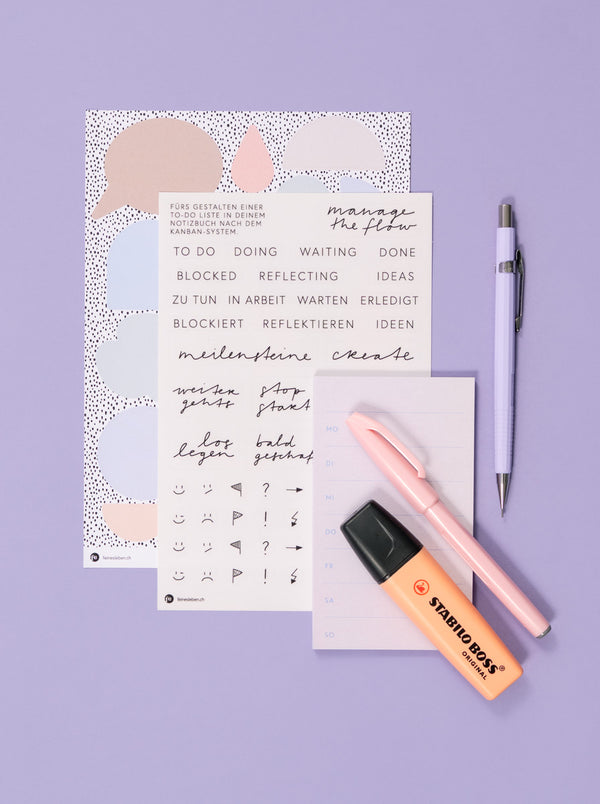 FÜRS GESTALTEN EINER
TO-DO LISTE IN DEINEM
NOTIZBUCH NACH DEM
KANBAN-SYSTEM.
manage
the flow
TO DO DOING WAITING DONE
BLOCKED REFLECTING IDEAS
ZU TUN IN ARBEIT WARTEN ERLEDIGT
BLOCKIERT REFLEKTIEREN IDEEN
meilensteine create
weiter
gehts
stop
start
los
legen
bald
geschaf
? 
!
?
!
feinesleben.ch
feinesleben.ch
MO
DI
MI
DO
FR
SA
SO
STABILO BOSS®
ORIGINAL